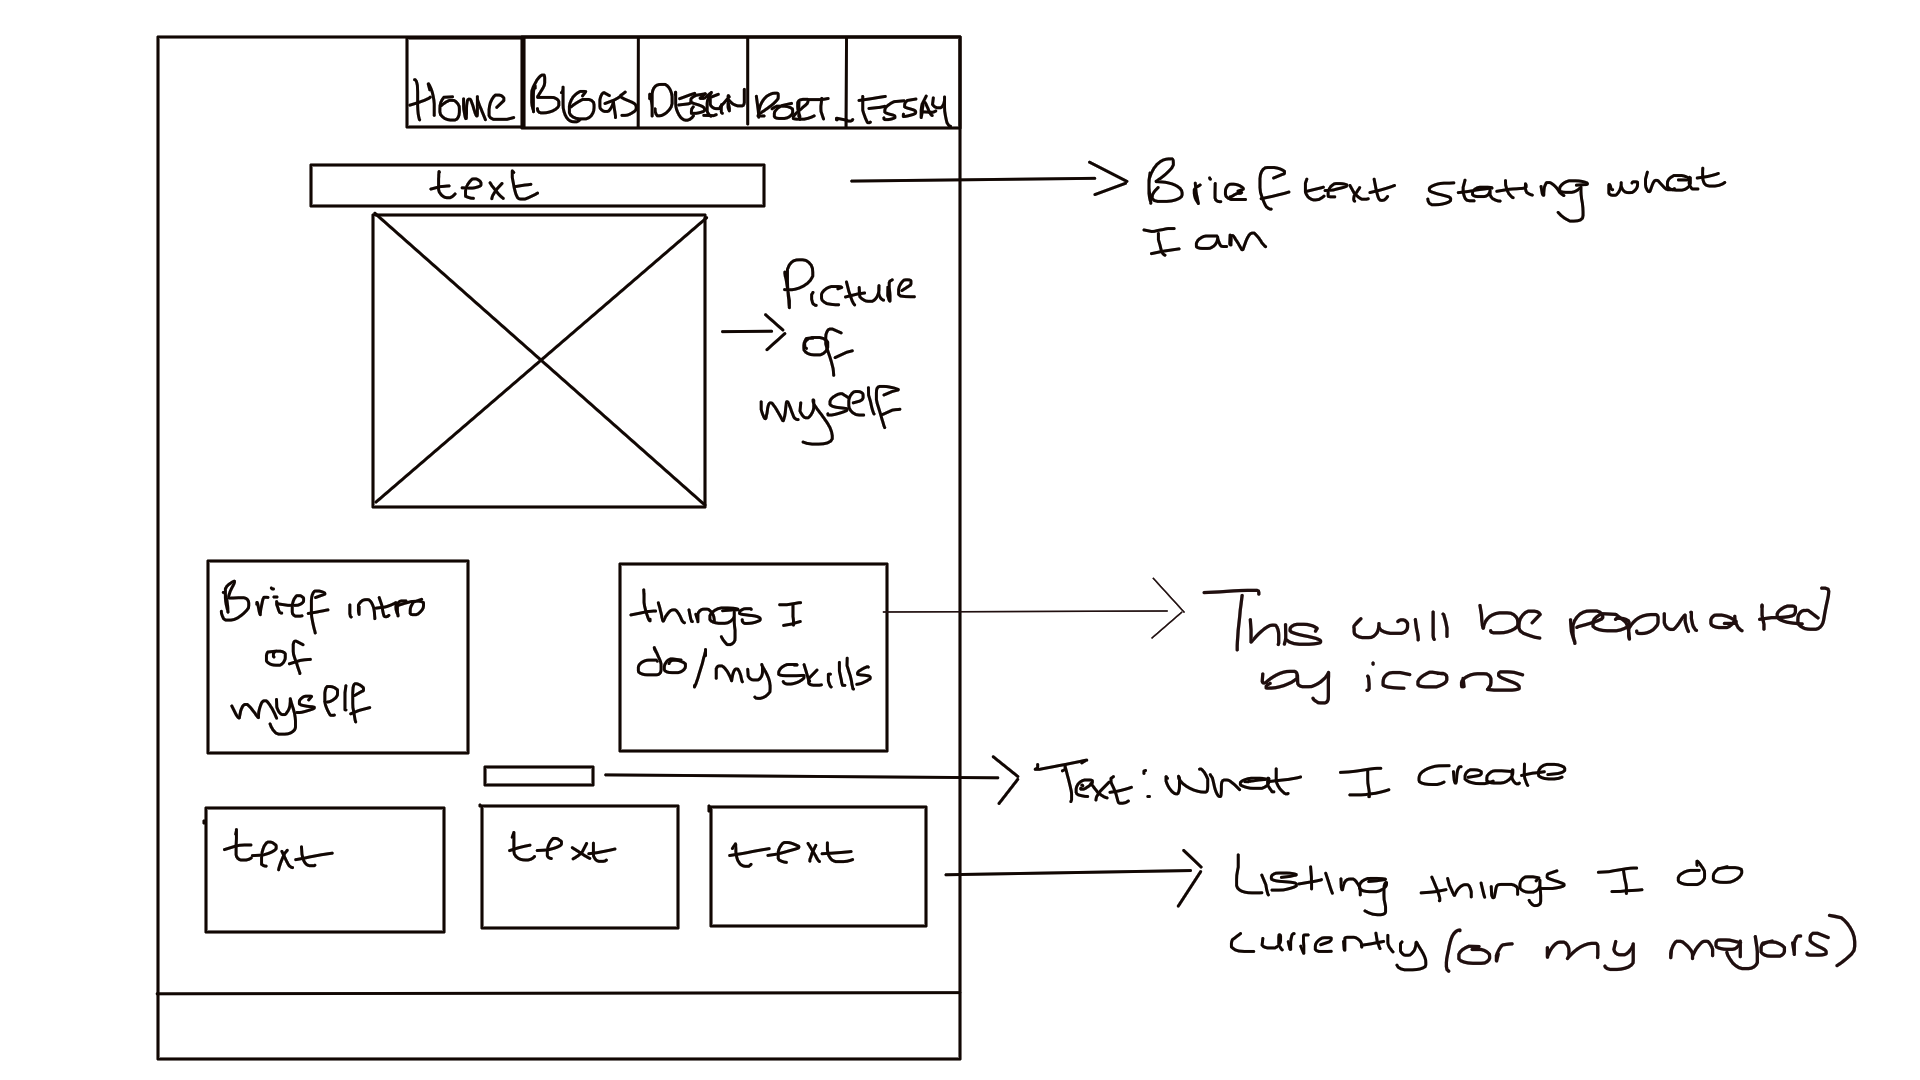 HOME BLOGS DESIGN PORT_ ESSAY
text
Brief text stating what
I am
Picture
of
myself
Brief intro
of
myself
things I
do/my skills
This will be populated
by icons
Text: what I create
text text text
Listing things I do
currently (or my majors)